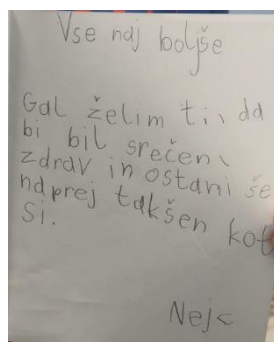 Vse naj boljše
Gal želim ti, da
bi bil srečen,
zdrav in ostani še
naprej takšen kot
si.
Nejc